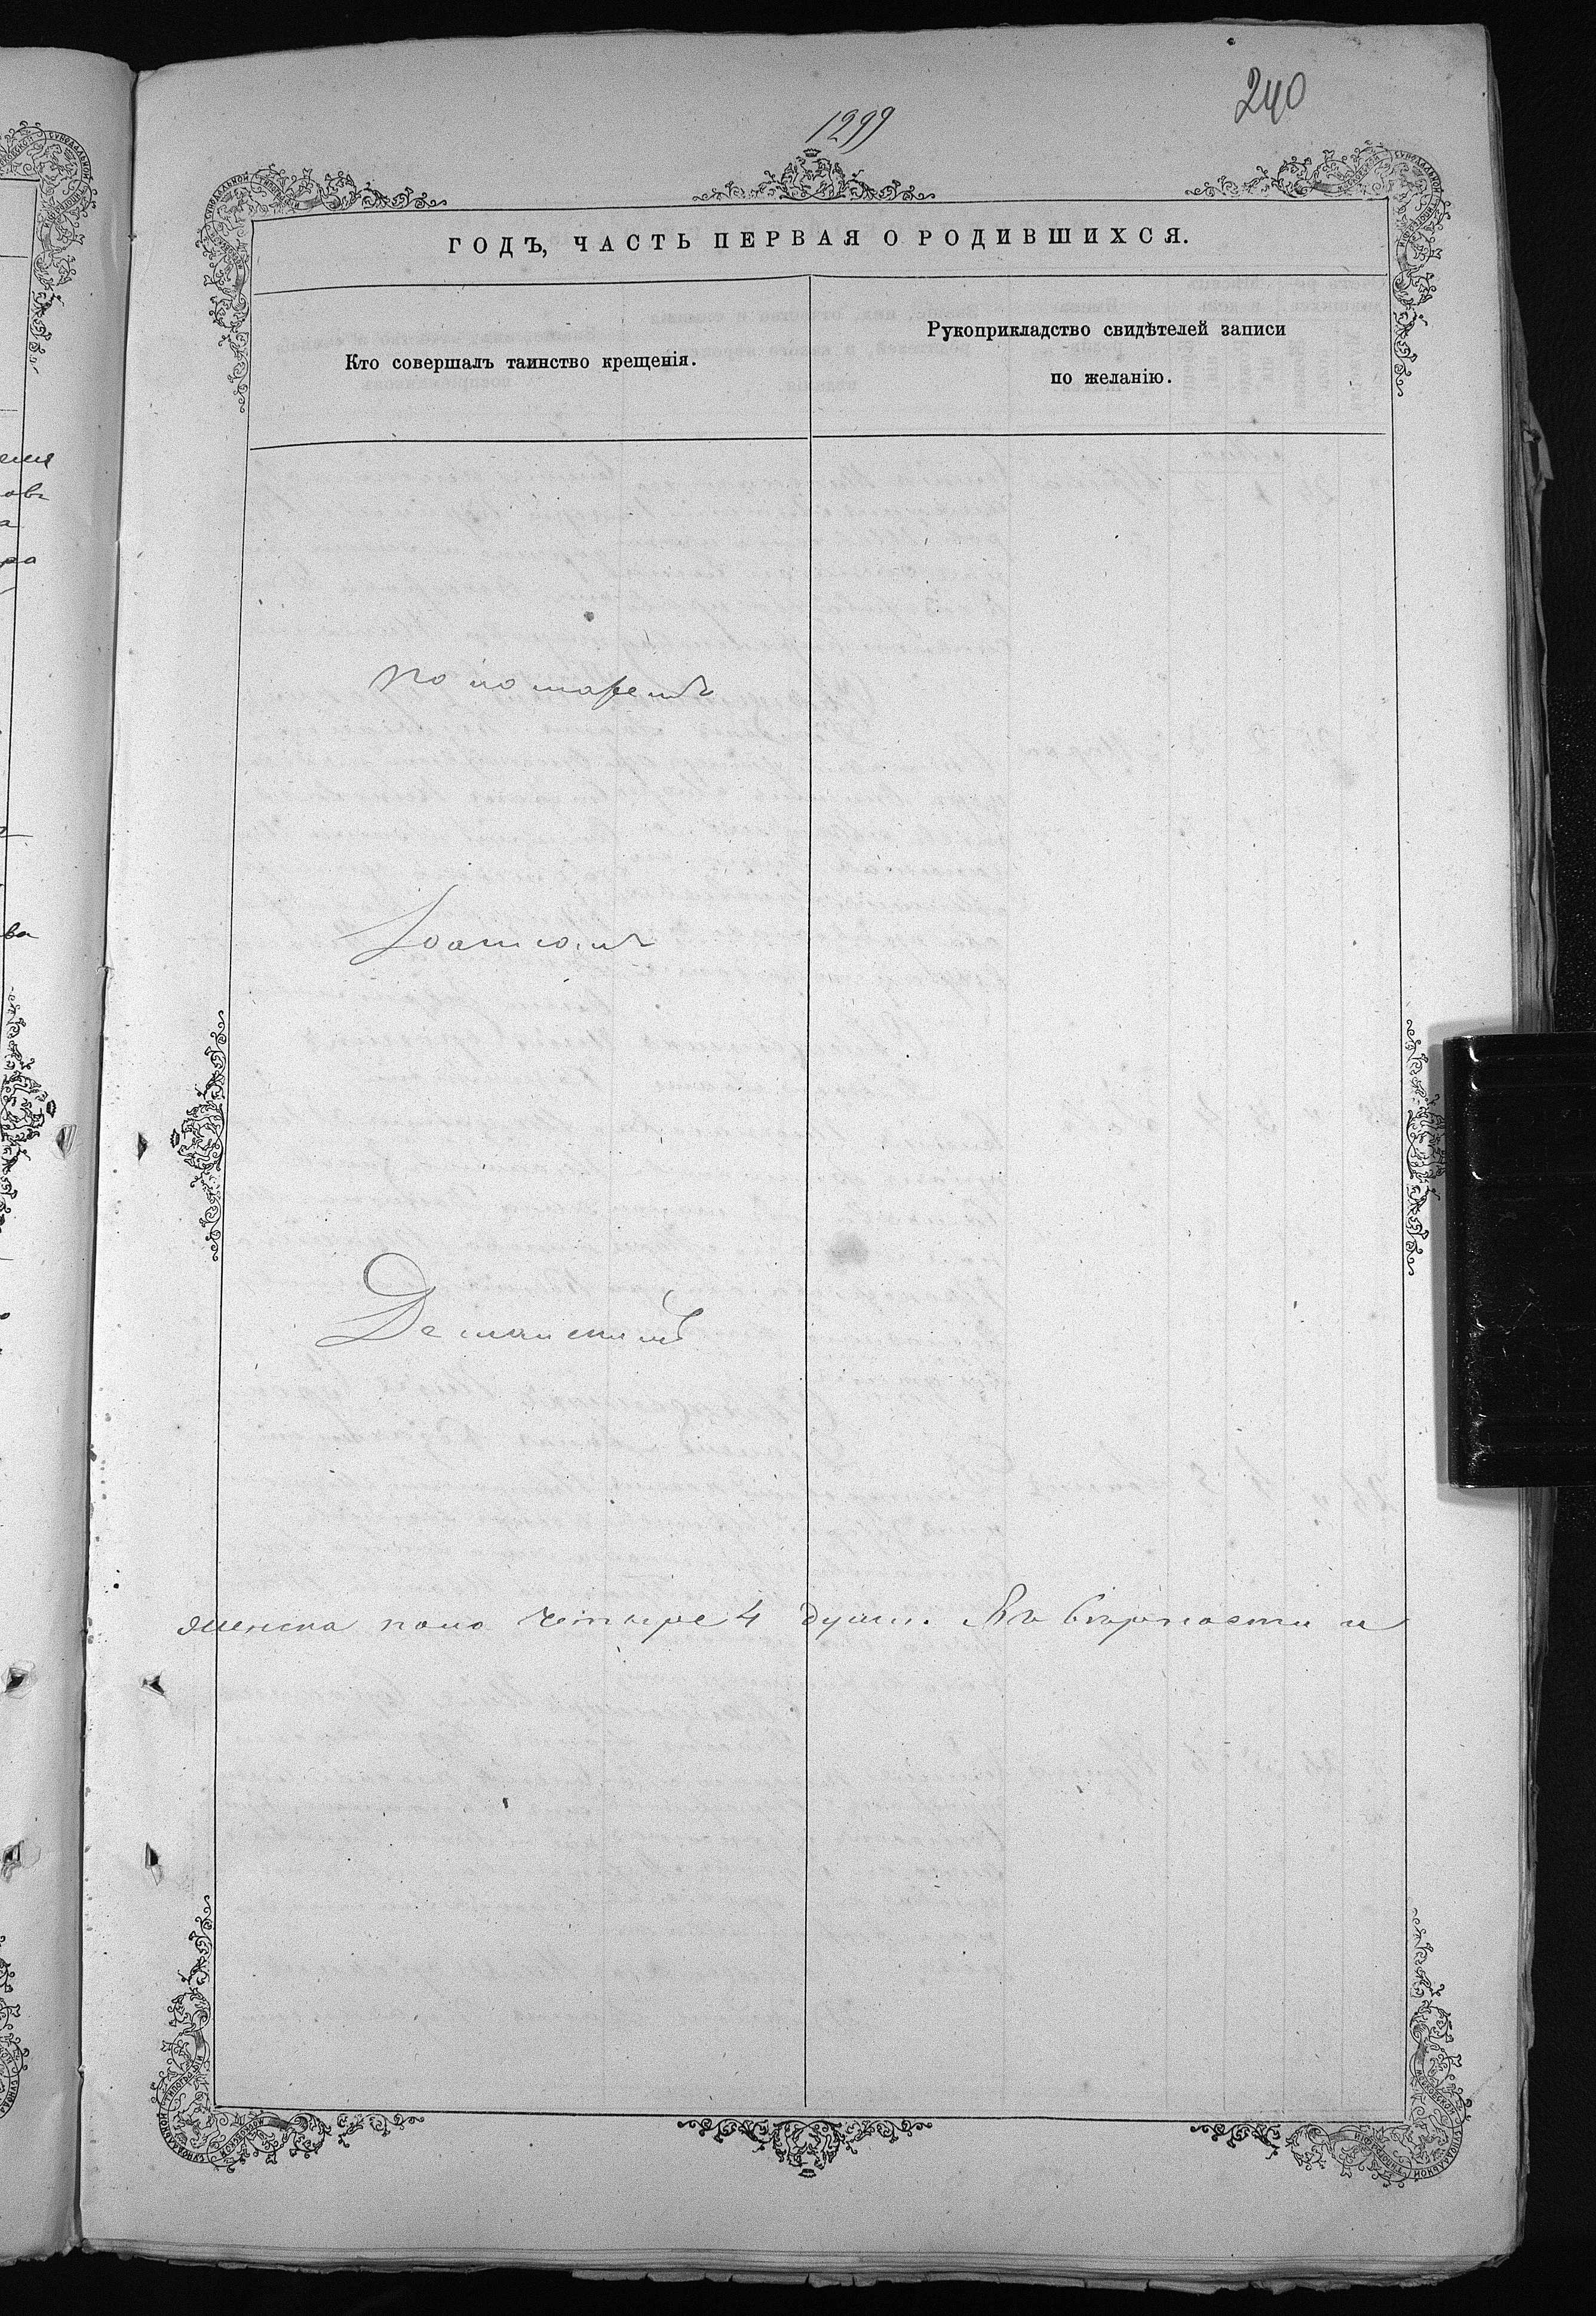 240
1299
ГОДЪ, ЧАСТЬ ПЕРВАЯ О РОДИВШИХСЯ.
Кто совершалъ таинство крещенія.
Рукоприкладство свидѣтелей записи
по желанію.
пономаремъ
Іоанномъ
женска поло четыре 4 души. Въ вѣрности и